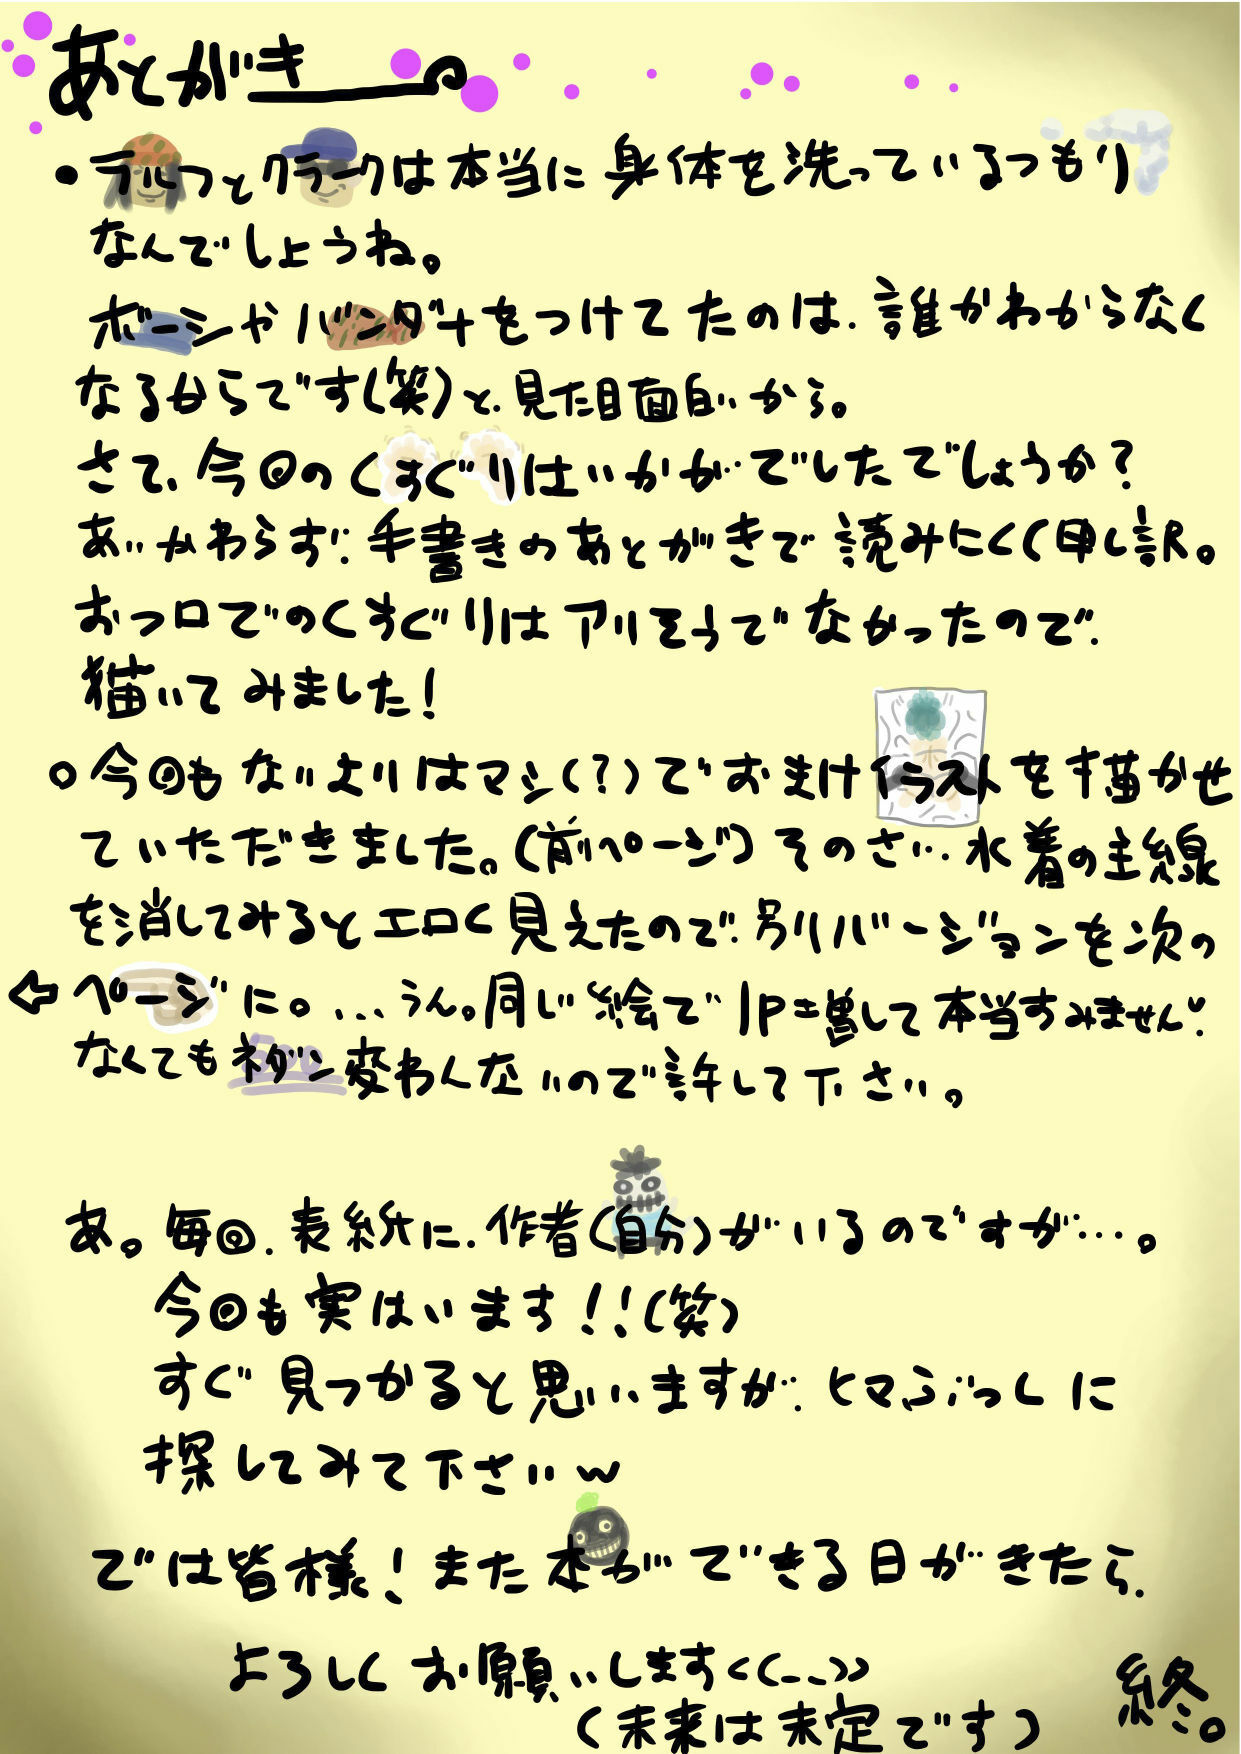 あとがき
・ラルフとクラークは本当に身体を洗っているつもり
なんでしょうね。
ボーシやバンダナをつけてたのは、誰かわからなく
なるからです(笑)と、見た目面白いから。
さて、今回のくすぐりはいかがでしたでしょうか?
あいかわらず、手書きのあとがきで読みにくく申し訳。
お風口でのくすぐりはアリそうでなかったので、
描いてみました!
○今回もないよりはマシ(?)でおまけイラストを描かせ
ていただきました。(前ページ)そのさい、水着の主線
を消してみるとエロく見えたので、別バージョンを次の
⇦ページに。...うん。同じ絵で1P増して本当すみません!
なくてもネダン変わんないので許して下さい。
あ。毎回、表紙に、作者(自分)がいるのですが…。
今回も実はいます!!(笑)
すぐ見つかると思いますが、ヒマぶっしに
探してみて下さいw
では皆様!また本ができる日がきたら、
よろしくお願いします<(_ _)>
(未来は未定です)
終。